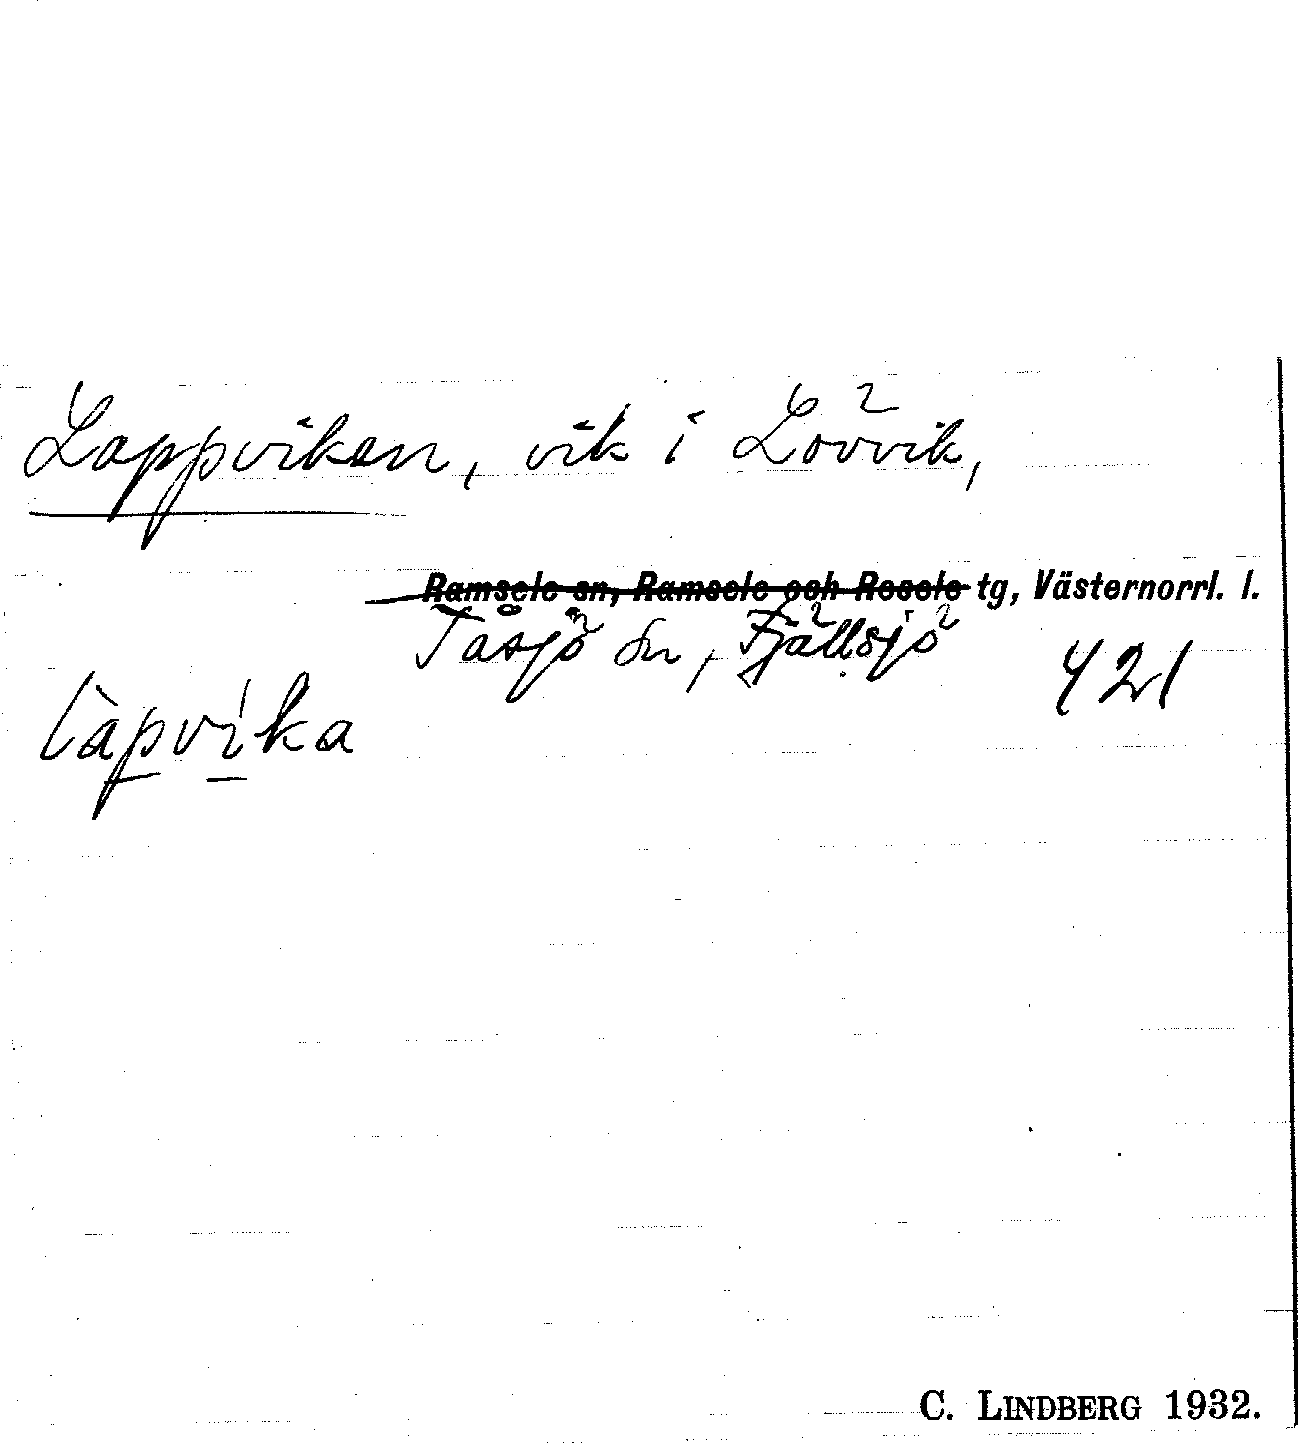 Lappviken, vik i Lövvik,
Ramsele sn, Ramsele och Resele tg, Västernorrl. l.
Tåsjö sn, Fjällsjö
421
làpvika
C. LINDBERG 1932.